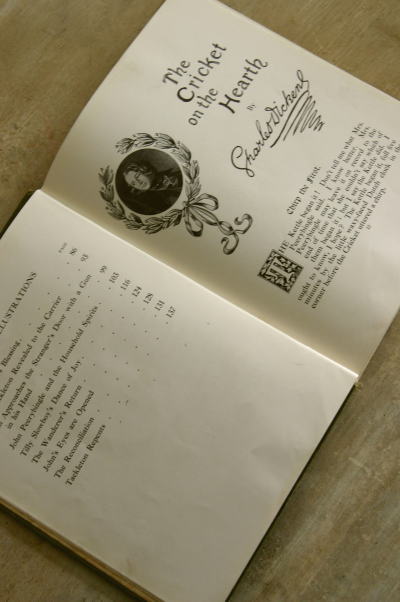 ILLUSTRATIONS
PAGE
Blessing 86
Revealed to the Carrier 93
Approaches the Stranger's Door with a Gun
in his Hand 99
John Peerybingle and the Household Spirits 103
Tilly Slowboy's Dance of Joy 116
The Wanderer's Return 124
John's Eyes are Opened 128
The Reconciliation 131
Tackleton Repents 137
The
Cricket
on the
Hearth
By
Charles Dickens
CHIRP THE FIRST.
THE Kettle began it! Don't tell me what Mrs.
Peerybingle said. I know better. Mrs.
Peerybingle may leave it on record to the
end of time that she couldn't say which
them began it; but I say the Kettle did. I
ought to know, I hope? The Kettle began it, full five
minutes by the little waxy-faced Dutch clock in the
corner before the Cricket uttered a chirp.